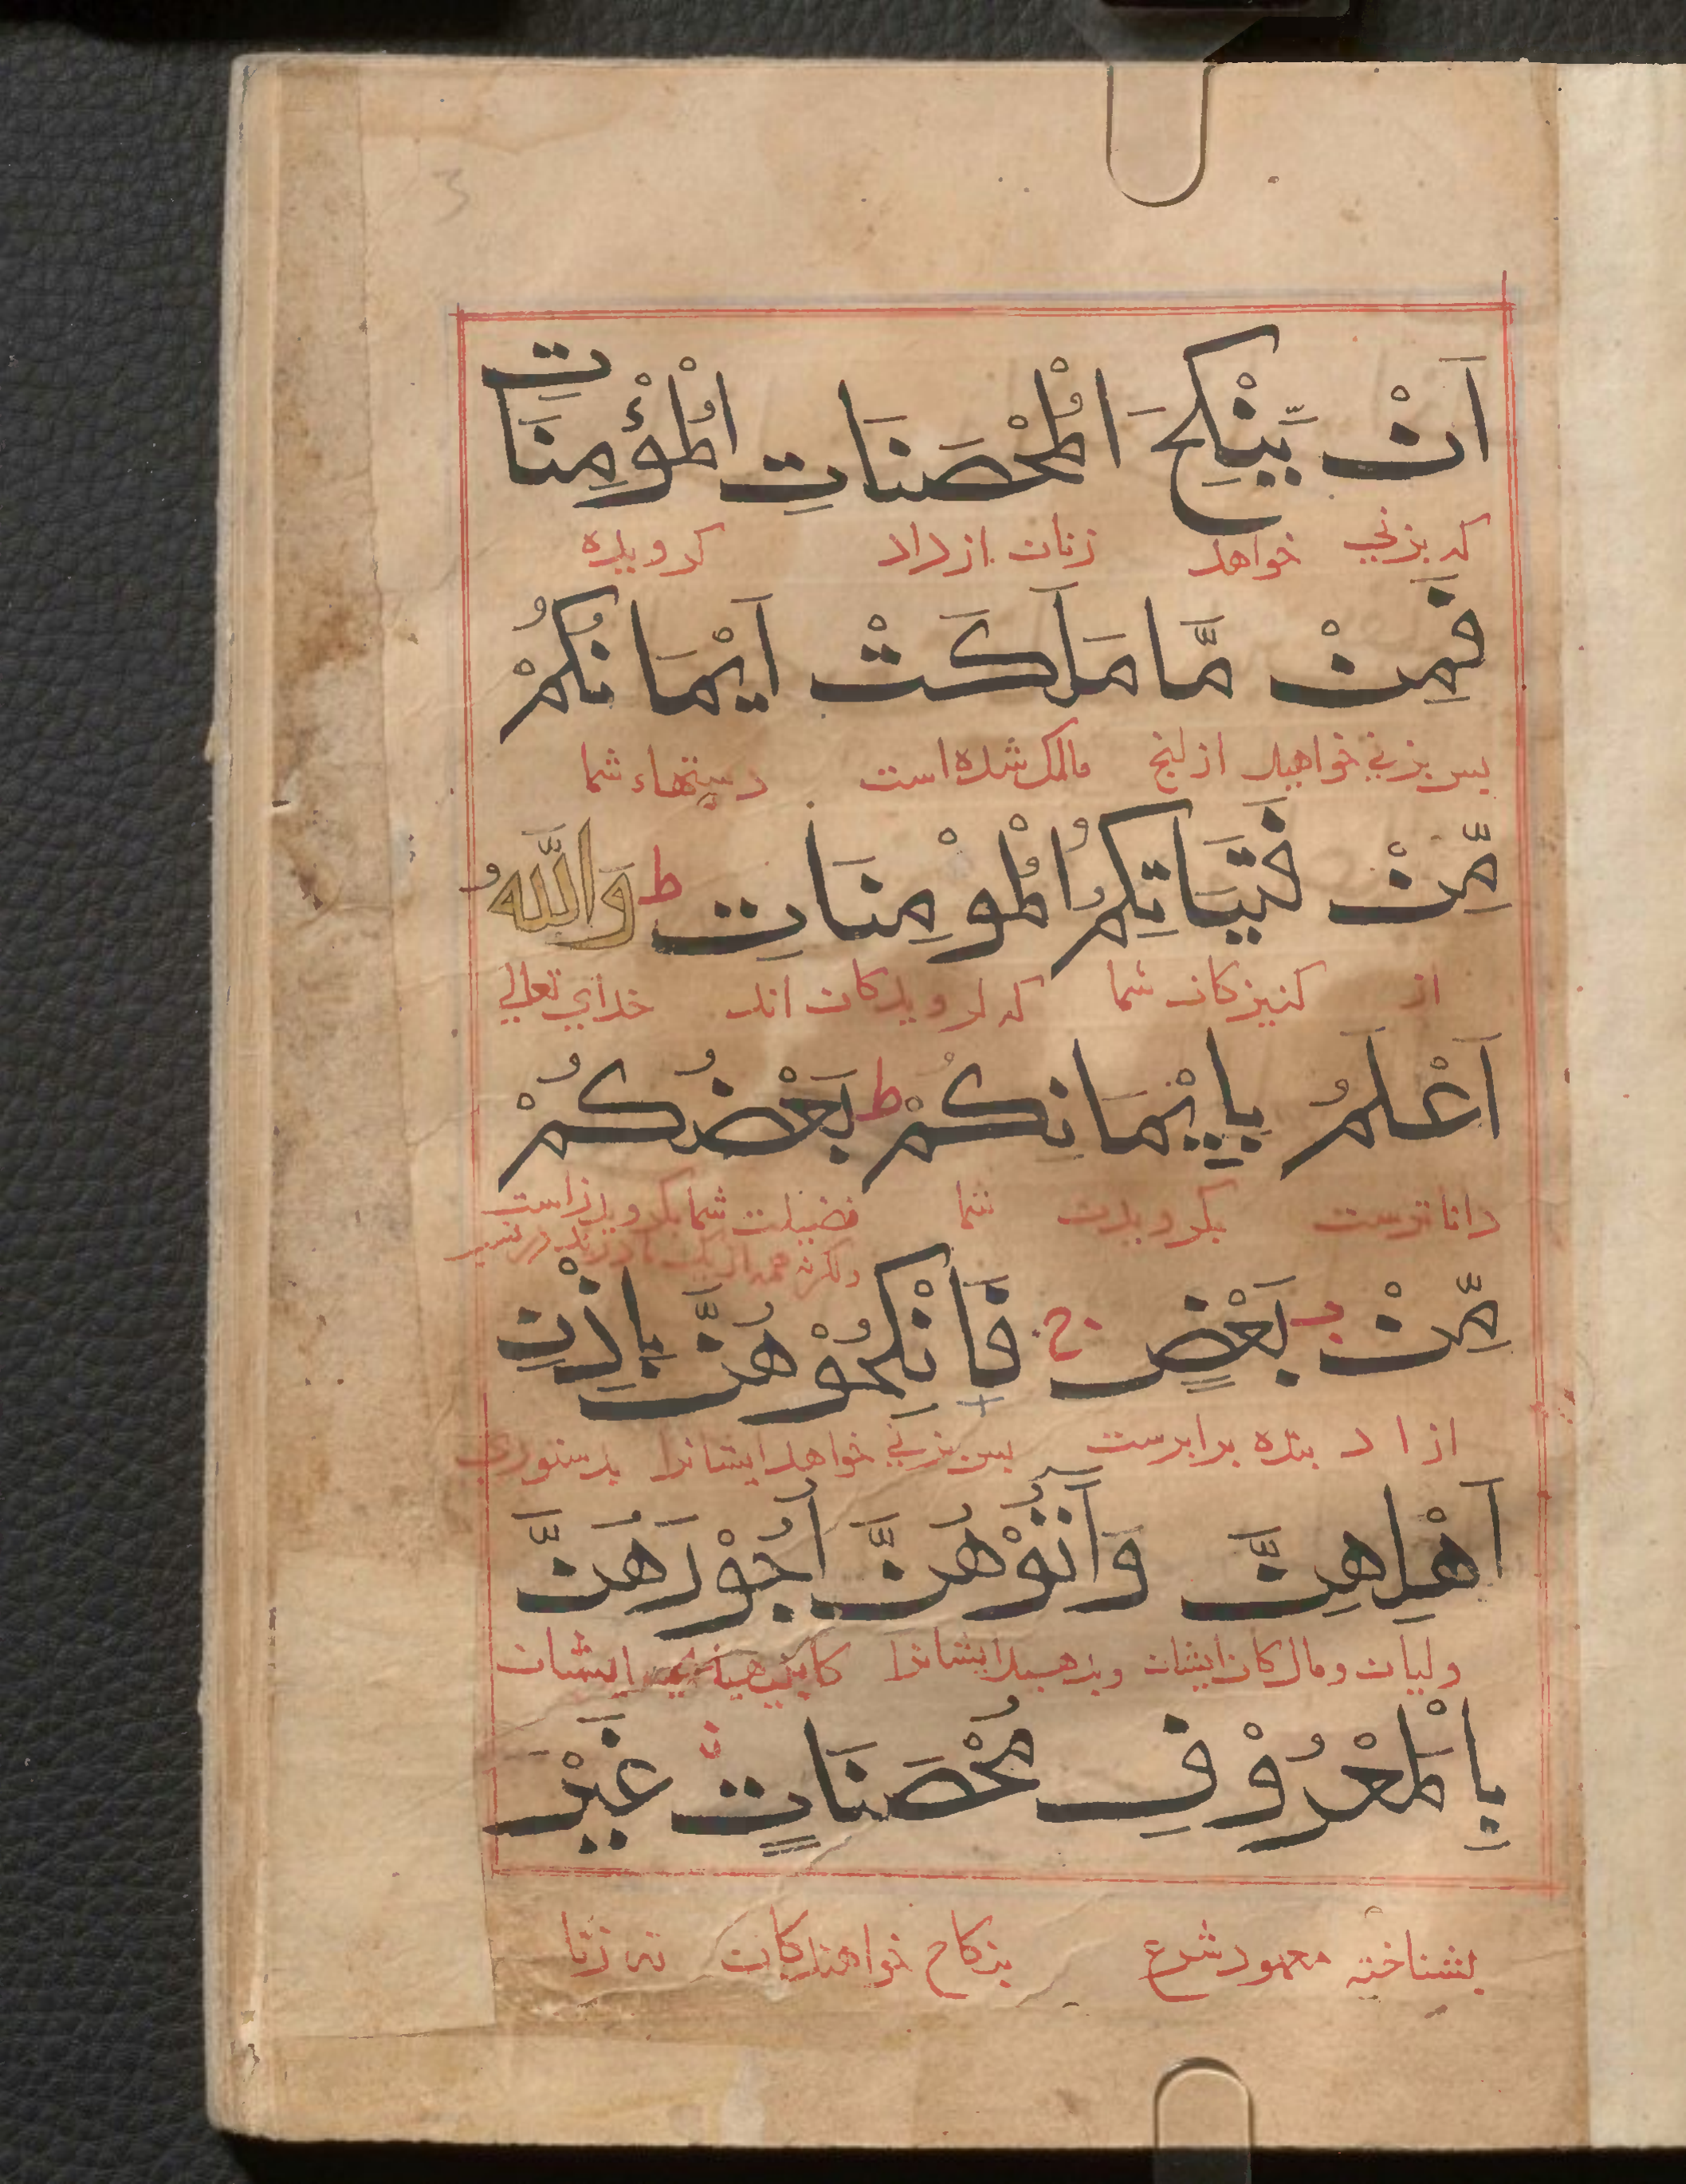 اَنْ يَّنْكِحَ الْمُحْصَنَاتِ الْمُؤْمِنَاتِ
كه بزني خواهد زنان ازداد كرويده
فَمِنْ مَّا مَلَكَتْ اَيْمَانُكُمْ
پس بزني خواهيد ازانج مالك شده است دستهاء شما
مِّنْ فَتَيَاتِكُمُ الْمُوْمِنَاتِ ط وَاللّٰهُ
از كنيزكان شما كه كرويدكان اند خداي تعالي
اَعْلَمُ بِاِيْمَانِكُمْ ط بَعْضُكُمْ
داناترست بكرويدن شما فضيلت شما بكرويدن است
مِّنْ بَعْضٍ ج فَانْكِحُوْهُنَّ بِاِذْنِ
ازاد بنده برابرست پس بزني خواهد ايشانرا بدستوري
اَهْلِهِنَّ وَاٰتُوْهُنَّ اُجُوْرَهُنَّ
وليان ومالكان ايشان وبدهيد ايشانرا كابينهاء ايشان
بِالْمَعْرُوْفِ مُحْصَنَاتٍ غَيْرَ
بشناخته معهود شرع بنكاح خواهندكان نه زنا